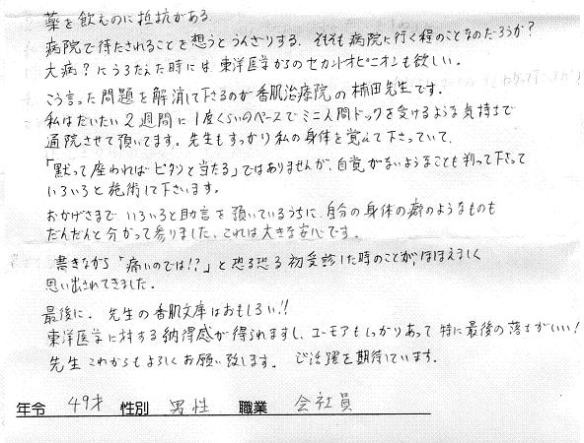 薬を飲むのに抵抗がある
病院で待たされることを想うとうんざりする。そもそも病院に行く程のことなのだろうか?
大病?にうろたえた時には東洋医学からのセカンドオピニオンも欲しい。
こう言った問題を解消して下さるのが香肌治療院の柿田先生です。
私はだいたい2週間に1度くらいのペースでミニ人間ドックを受けるような気持ちで
通院させて頂いてます。先生もすっかり私の身体を覚えて下さっていて、
「黙って座わればピタッと当たる」ではありませんが、自覚がないようなことも判って下さって
いろいろと施術して下さいます。
おかげさまでいろいろと助言を頂いているうちに、自分の身体の癖のようなものも
だんだんと分かって参りました、これは大きな安心です。
書きながら「痛いのでは!?」と恐る恐る初受診した時のことが、ほほえましく
思い出されてきました。
最後に、先生の香肌文庫はおもしろい!!
東洋医学に対する納得感が得られますし、ユーモアもしっかりあって特に最後の落ちがいい!
先生これからもよろしくお願い致します。ご活躍を期待しています。
年令 49才 性別 男性 職業 会社員